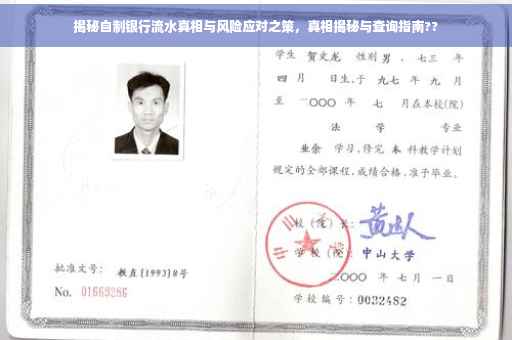 揭秘自制银行流水真相与风险应对之策，真相揭秘与查询指南??
学生 贺文龙 性别 男 ，七三 年
四 月 日生，于 九七 年 九 月
至 二〇〇〇 年 七 月在本校(院)
法 学 专业
业余 学习，修完 本 科教学计划
规定的全部课程，成绩合格，准予毕业。
校（院）长：
学 校（院）：中山大学
二〇〇〇 年 七 月 一 日
批准文号： 教直[1993]8号
No. 01669286
学校编号：0032482